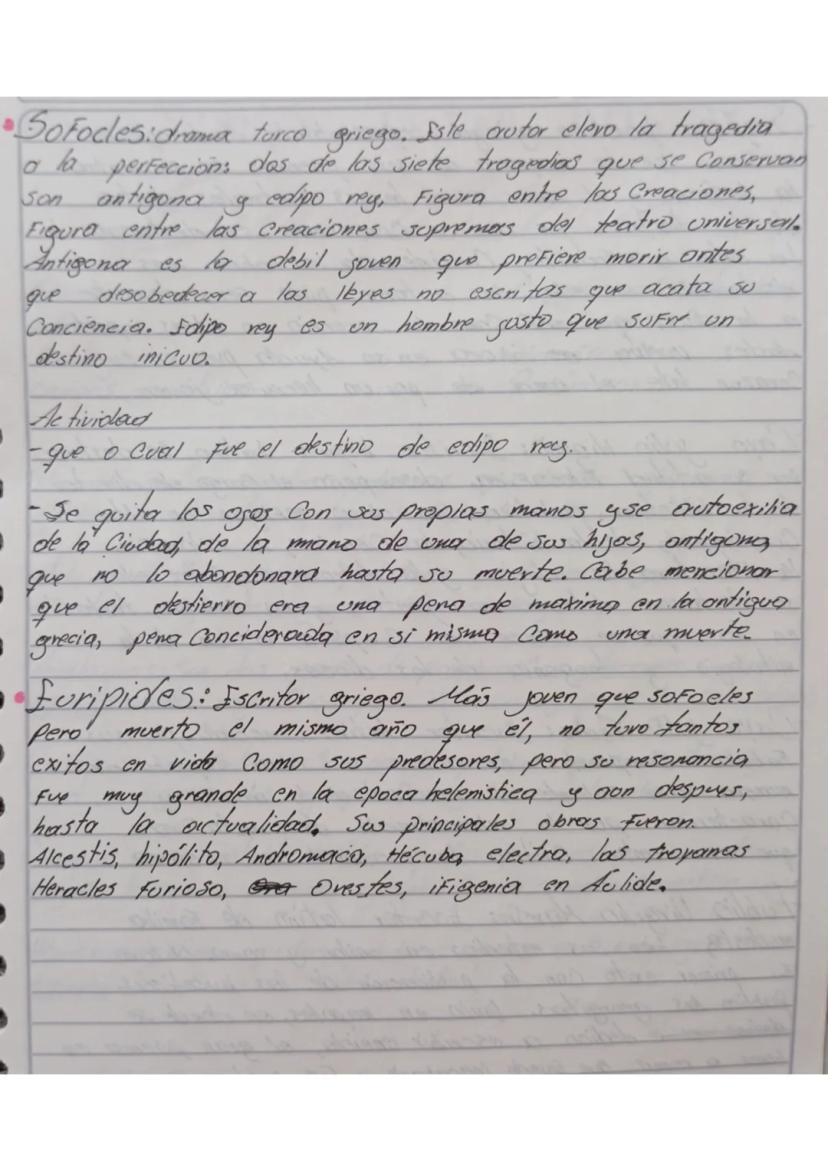 Sofocles: drama turco griego. Este autor elevo la tragedia
a la perfección: dos de las siete tragedias que se Conservan
son antigona y edipo rey, Figura entre las Creaciones,
Figura entre las Creaciones supremas del teatro universal.
Antigona es la debil joven que prefiere morir antes
que desobedecer a las leyes no escritas que acata su
Conciencia. Edipo rey es un hombre justo que sufre un
destino inicuo.
Actividad
- que o Cual Fue el destino de edipo rey.
- Se quita los ojos Con sus propias manos y se autoexilia
de la Ciudad, de la mano de una de sus hijas, antigona,
que no lo abandonara hasta su muerte. Cabe mencionar
que el destierro era una pena de maxima en la antigua
grecia, pena Conciderada en si misma Como una muerte.
Euripides: Escritor griego. Más joven que sofocles
pero muerto el mismo año que él, no tuvo tantos
exitos en vida Como sus predesores, pero su resonancia
Fue muy grande en la epoca helenistica y aon despues,
hasta la actualidad. Sus principales obras Fueron.
Alcestis, hipólito, Andromaca, Hécuba, electra, las troyanas
Heracles Furioso, Orestes, iFigenia en Áulide.